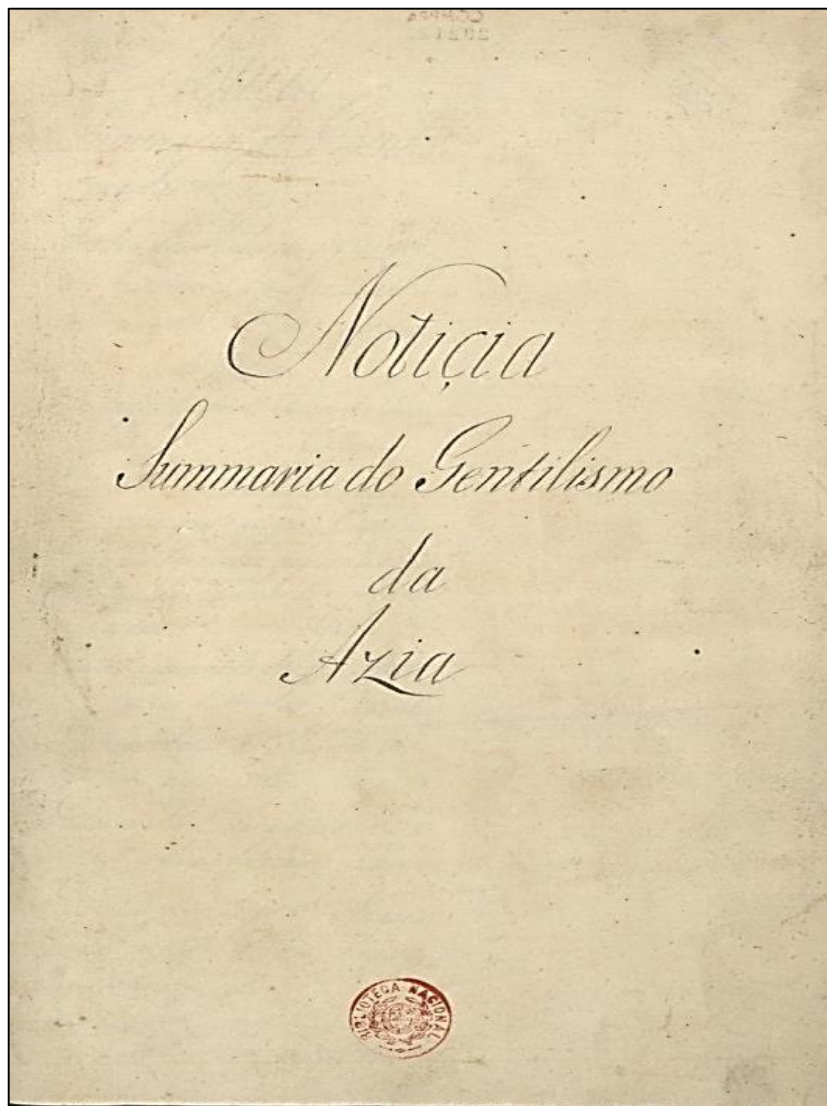 COMPRA
Notiçia
Summaria do Gentilismo
da
Azia
BIBLIOTECA NACIONAL